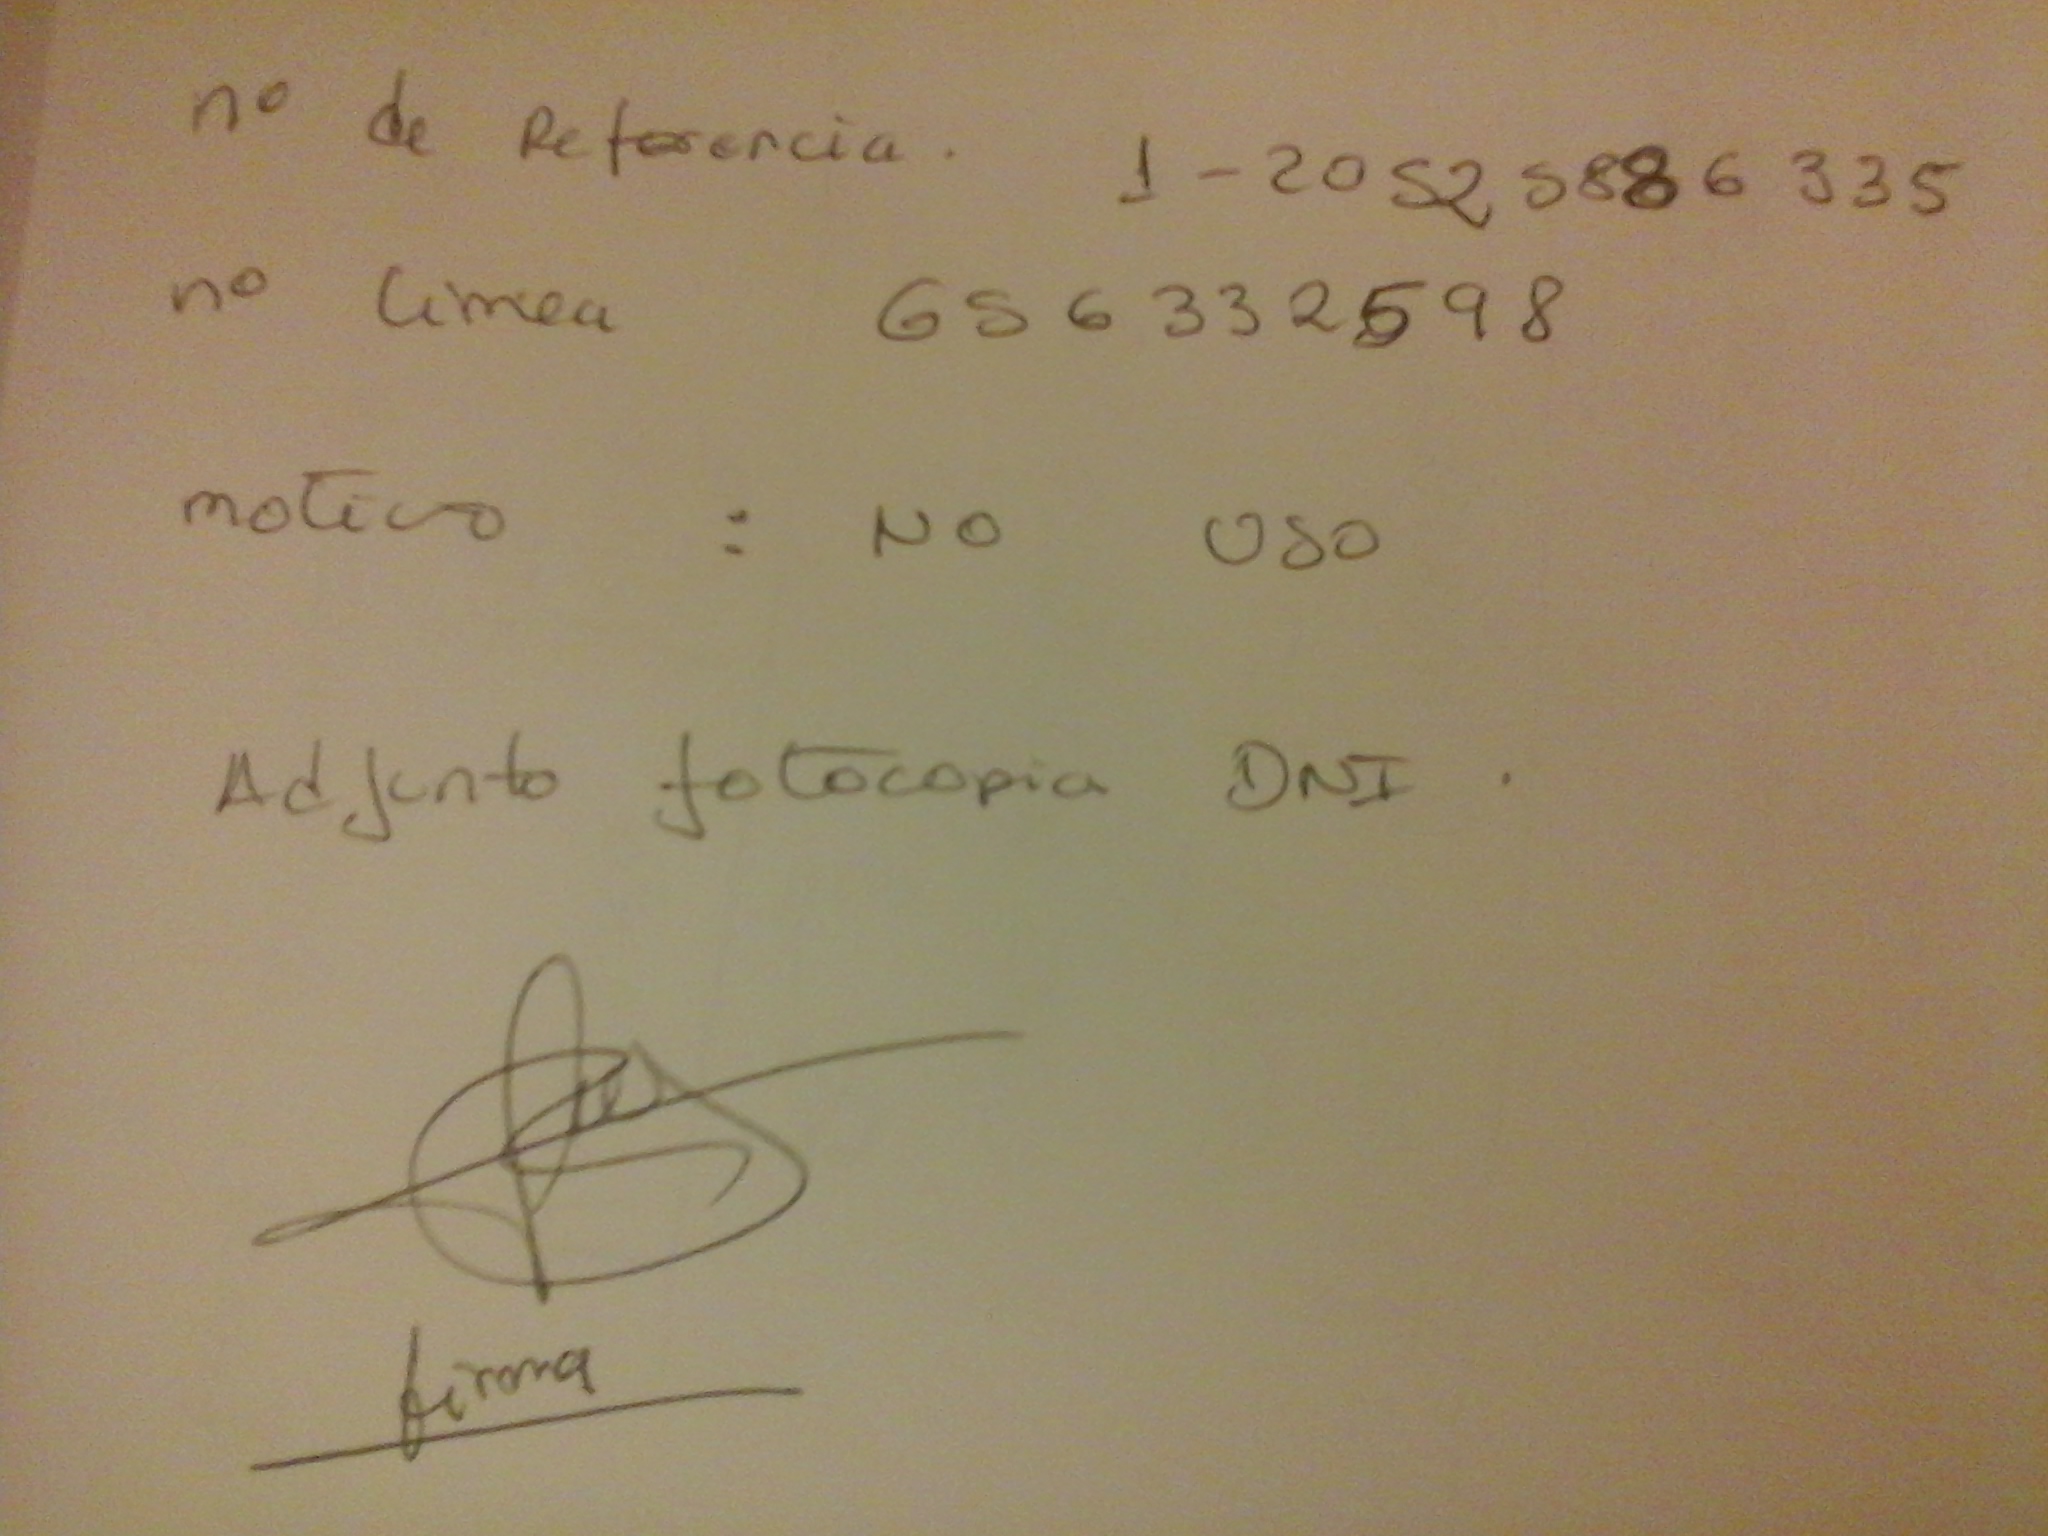 nº de Referencia. 1-20525886335
nº Linea 656332598
motivo : NO USO
Adjunto fotocopia DNI.
firma